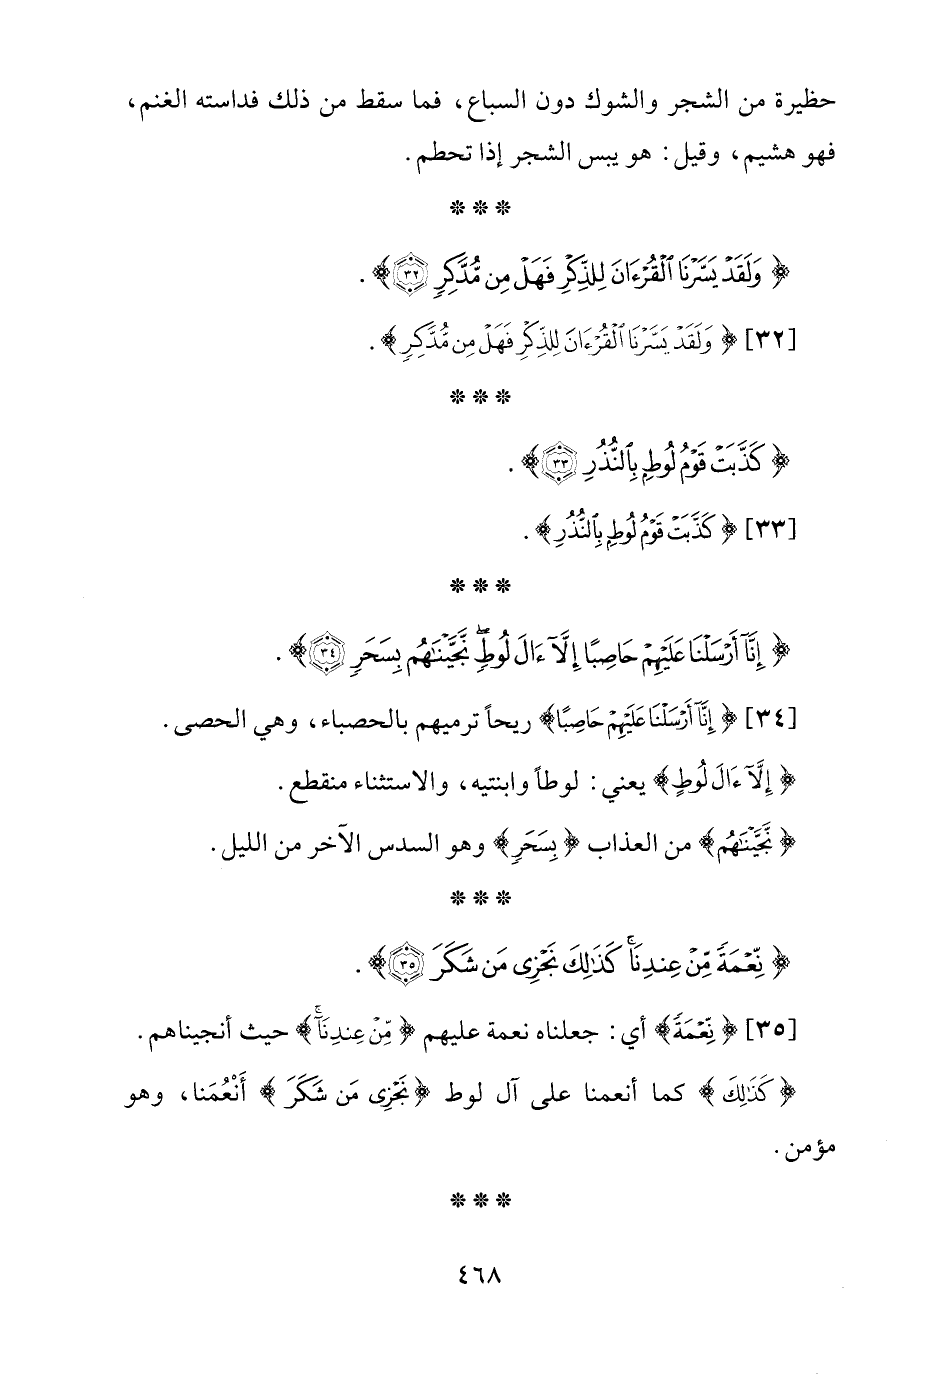 حظيرة من الشجر والشوك دون السباع، فما سقط من ذلك فداسته الغنم،
فهو هشيم، وقيل: هو يبس الشجر إذا تحطم.
* * *
﴿ وَلَقَدْ يَسَّرْنَا ٱلْقُرْءَانَ لِلذِّكْرِ فَهَلْ مِن مُّدَّكِرٍ ٣٢ ﴾.
[٣٢] ﴿ وَلَقَدْ يَسَّرْنَا ٱلْقُرْءَانَ لِلذِّكْرِ فَهَلْ مِن مُّدَّكِرٍ ﴾.
* * *
﴿ كَذَّبَتْ قَوْمُ لُوطٍ بِٱلنُّذُرِ ٣٣ ﴾.
[٣٣] ﴿ كَذَّبَتْ قَوْمُ لُوطٍ بِٱلنُّذُرِ ﴾.
* * *
﴿ إِنَّآ أَرْسَلْنَا عَلَيْهِمْ حَاصِبًا إِلَّآ ءَالَ لُوطٍ ۖ نَّجَّيْنَٰهُم بِسَحَرٍ ٣٤ ﴾.
[٣٤] ﴿ إِنَّآ أَرْسَلْنَا عَلَيْهِمْ حَاصِبًا ﴾ ريحاً ترميهم بالحصباء، وهي الحصى.
﴿ إِلَّآ ءَالَ لُوطٍ ﴾ يعني: لوطاً وابنتيه، والاستثناء منقطع.
﴿ نَّجَّيْنَٰهُم ﴾ من العذاب ﴿ بِسَحَرٍ ﴾ وهو السدس الآخر من الليل.
* * *
﴿ نِّعْمَةً مِّنْ عِندِنَا ۚ كَذَٰلِكَ نَجْزِى مَن شَكَرَ ٣٥ ﴾.
[٣٥] ﴿ نِّعْمَةً ﴾ أي: جعلناه نعمة عليهم ﴿ مِّنْ عِندِنَآ ۚ ﴾ حيث أنجيناهم.
﴿ كَذَٰلِكَ ﴾ كما أنعمنا على آل لوط ﴿ نَجْزِى مَن شَكَرَ ﴾ أَنْعُمَنا، وهو
مؤمن.
* * *
٤٦٨